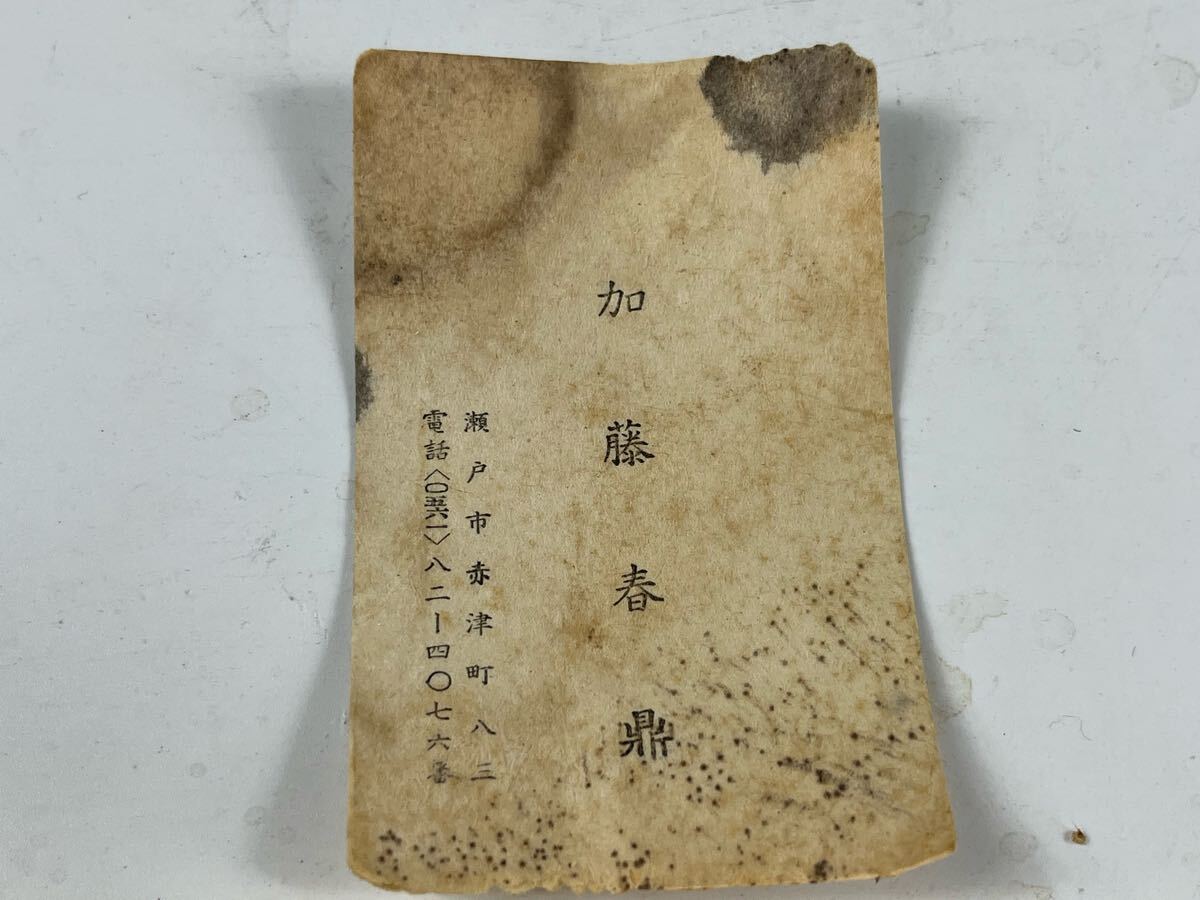 加藤春鼎
瀬戸市赤津町八三
電話〈〇五六一〉八二ー四〇七六番